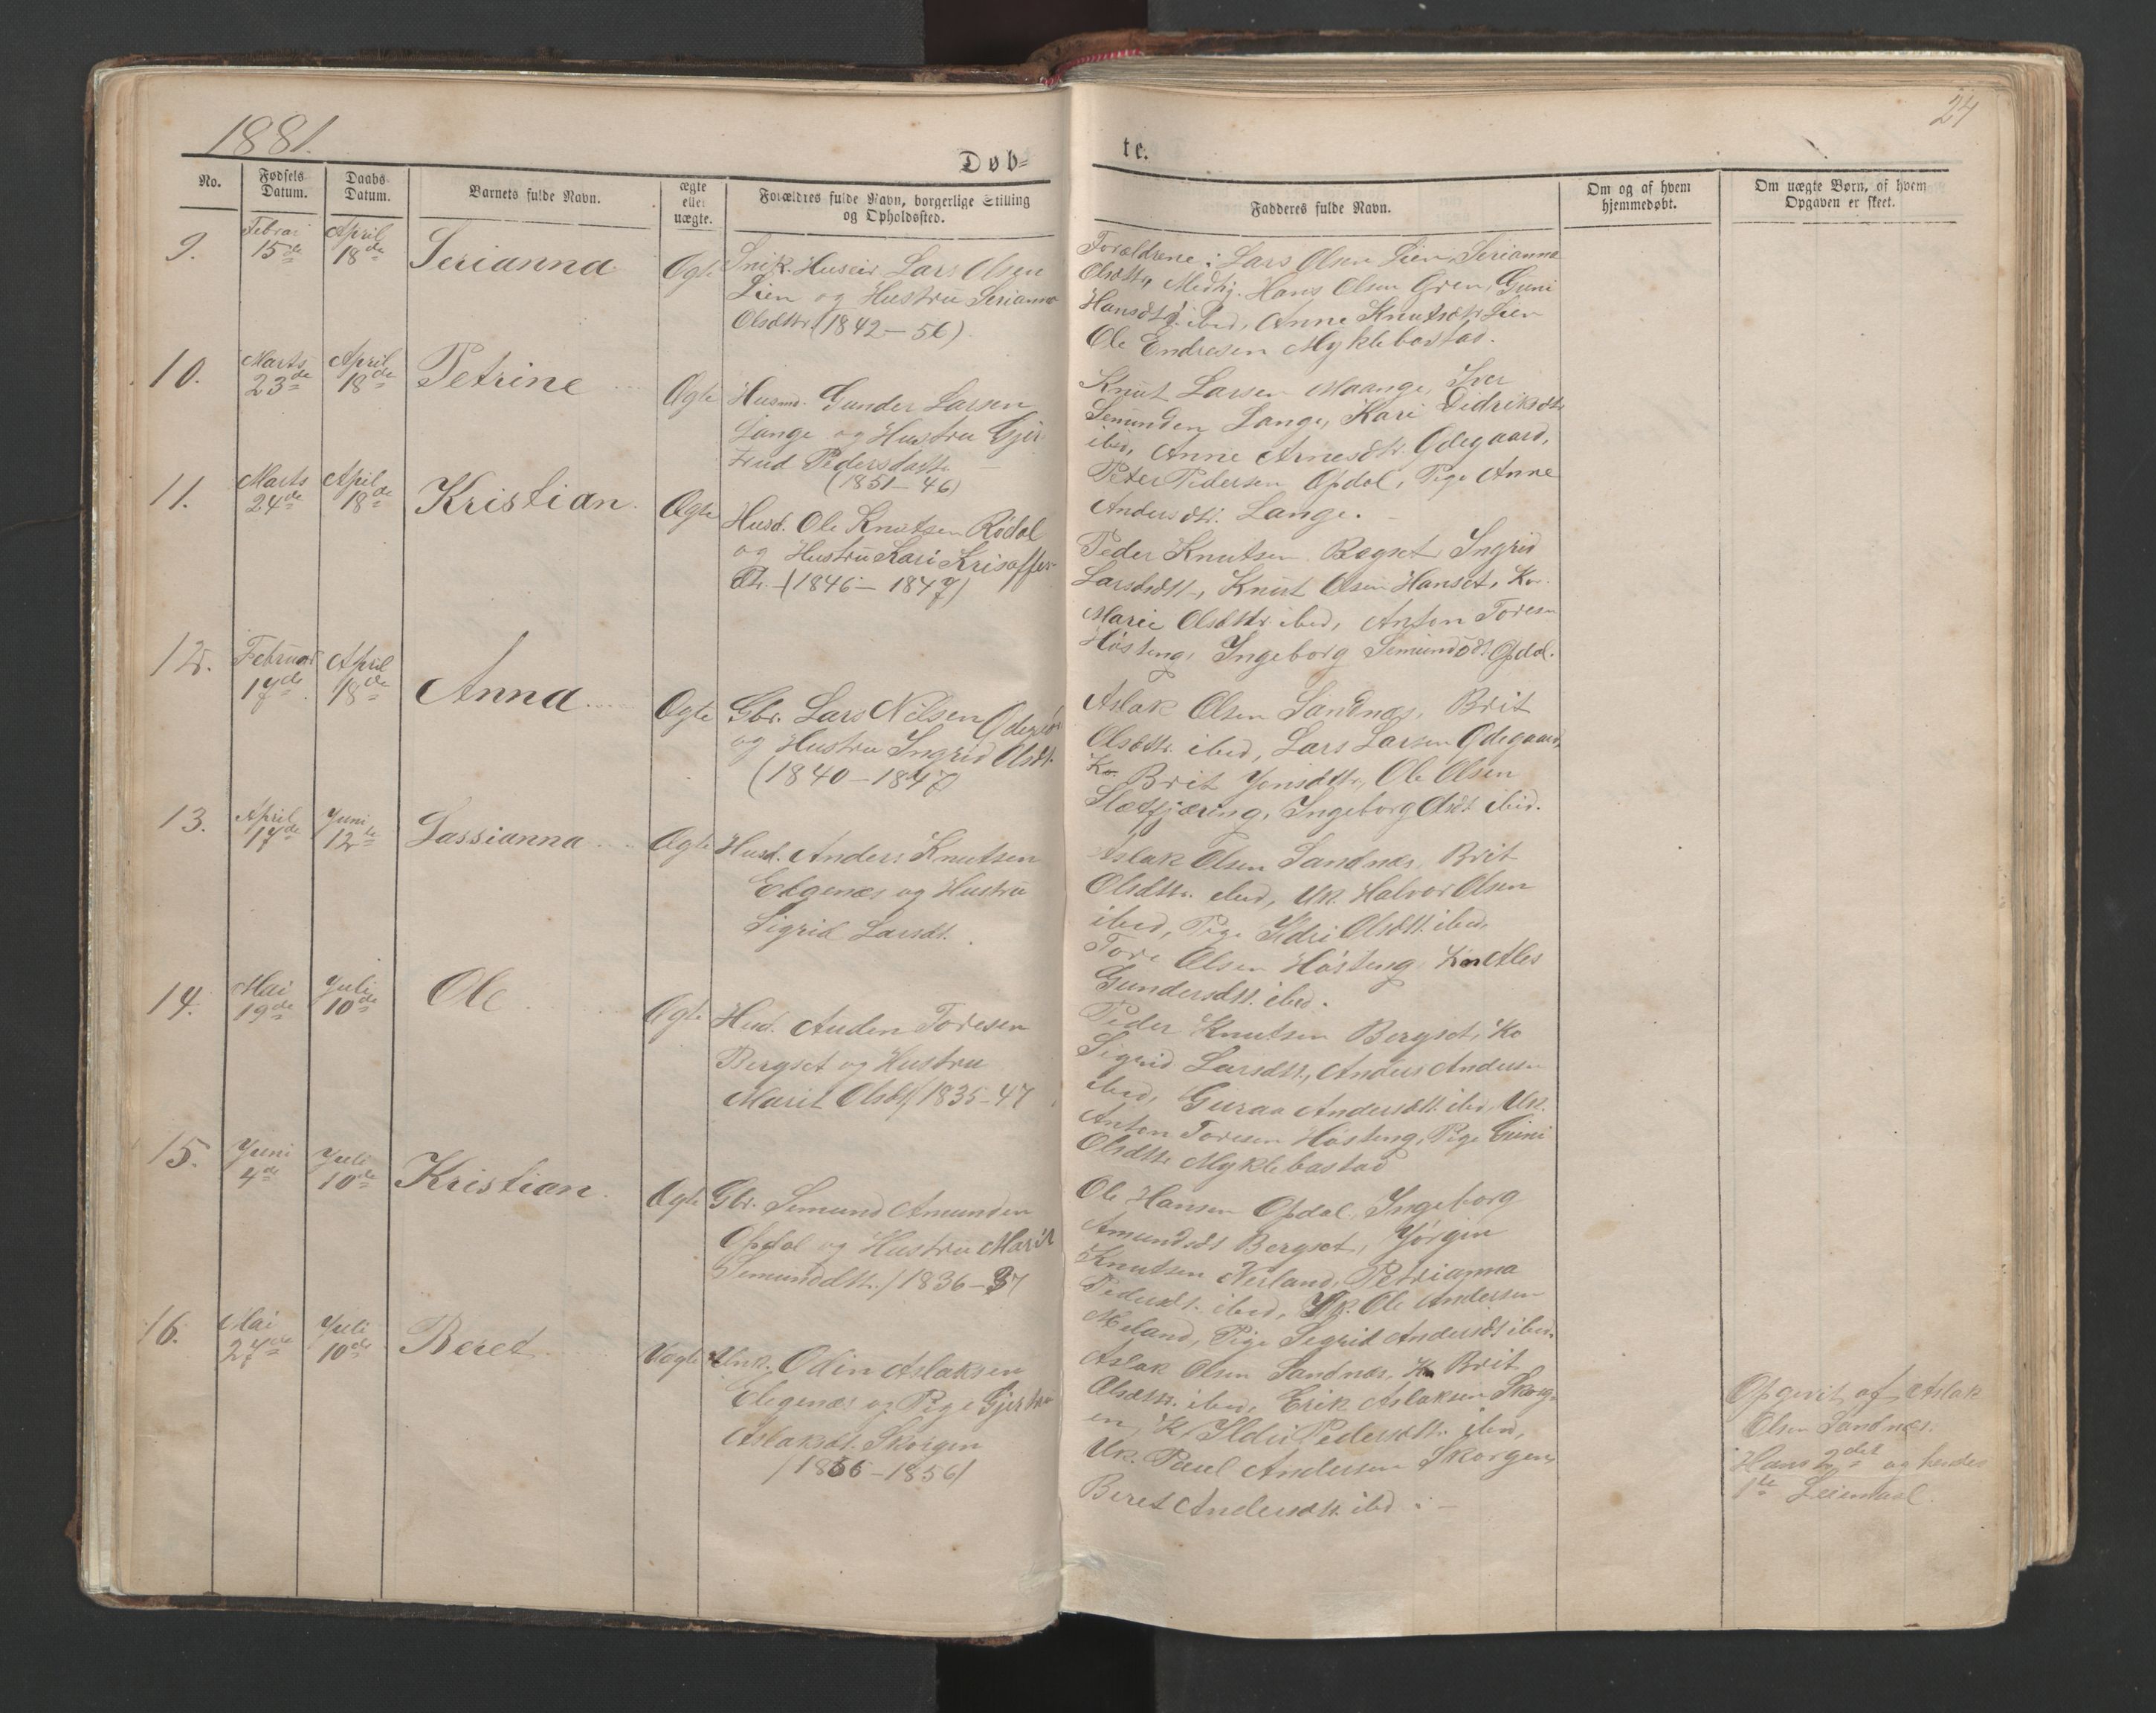 1881.
24
Døb-
te.
No.
Fødsels Datum.
Daabs Datum.
Barnets fulde Navn.
ægte eller uægte.
Forældres fulde Navn, borgerlige Stilling og Opholdssted.
Fadderes fulde Navn.
Om og af hvem hjemmedøbt.
Om uægte Børn, af hvem Opgaven er skeet.
9.
Februar
15de
April
18de
Serianna
Ægte
Snik. Huseier Lars Olsen
Lien og Hustru Serianna
Olsdttr. (1842-56)
Forældrene: Lars Olsen Lien, Serianna
Olsdttr, Medhj. Hans Olsen Gren, Guni
Hansdtt. ibid, Anne Knutsdtr Lien
Ole Endresen Myklebostad.
10.
Marts
23de
April
18de
Petrine
Ægte
Husmd. Gunder Larsen
Lange og Hustru Gjer-
trud Pedersdattr.
(1851-46)
Knut Larsen Maange, Iver
Semunden Lange, Kari Didriksdtr
ibid, Anne Arnesdtr. Ødegaard,
Peter Pedersen Opdol, Pige Anne
Andersdtr. Lange.
11.
Marts
24de
April
18de
Kristian.
Ægte
Husd. Ole Knutsen Rødal
og Hustru Kari Kristoffers-
dtr. (1846-1847)
Peder Knutsen Bergset Ingrid
Larsdtt, Knut Olsen Hanset, Ko.
Marie Olsdttr. ibid, Anton Toresen
Høsteng, Ingeborg Semundsdt. Opdol.
12.
Februar
17de
April
18de
Anna
Ægte
Gbr. Lars Nilsen
og Hustru Ingrid Olsdt.
(1840-1847)
Aslak Olsen Sandnæs, Brit
Olsdttr. ibid, Lars Larsen Ødegaard,
Ko. Brit Jonsdttr, Ole Olsen
Ingeborg Olsdt. ibid.
13.
April
17de
Juni
12te
Lassianna
Ægte
Husd. Anders Knutsen
Elgenæs og Hustru
Sigrid Larsdt.
Aslak Olsen Sandnæs, Brit
Olsdttr. ibid, Uk. Halvor Olsen
ibid, Pige Ildri Olsdtt. ibid,
Tore Olsen Høsteng, Kone Ales
Gundersdtt. ibid.
14.
Mai
19de
Juli
10de
Ole
Ægte
Husd. Auden Toresen
Bergset og Hustru
Marit Olsdt. (1835-47
Peder Knutsen Bergset, Ko
Sigrid Larsdtt., Anders Andersen
ibid, Guraa Andersdtt. ibid, Uk.
Anton Toresen Høsteng, Pige Guni
Olsdttr Myklebostad
15.
Juni
4de
Juli
10de
Kristian.
Ægte
Gbr. Semund Amunden
Opdol og Hustru Marit
Semunddttr. (1836-37
Ole Hansen Opdol, Ingeborg
Amundsdt Bergset, Jørgen
Knutsen Nesland, Petrianna
Pedersdt. ibid, Uk. Ole Andersen
Meland, Pige Segrid Andersdt ibid.
16.
Mai
27de
Juli
10de
Beret
Uægte
Unk. Odin Aslaksen
Elegenæs og Pige Gjertru
Aslaksdt. Skorgen
(1856-1856)
Aslak Olsen Sandnæs, Ko Brit
Olsdttr. ibid, Erik Aslaksen Skorg-
en, K. Ildri Pedersdttr. ibid,
Uk. Paul Andersen Skorgen,
Beret Andersdtt. ibid:-
Opgivet af Aslak
Olsen Sandnæs.
Hans 2det og hendes
1te Leiermaal.